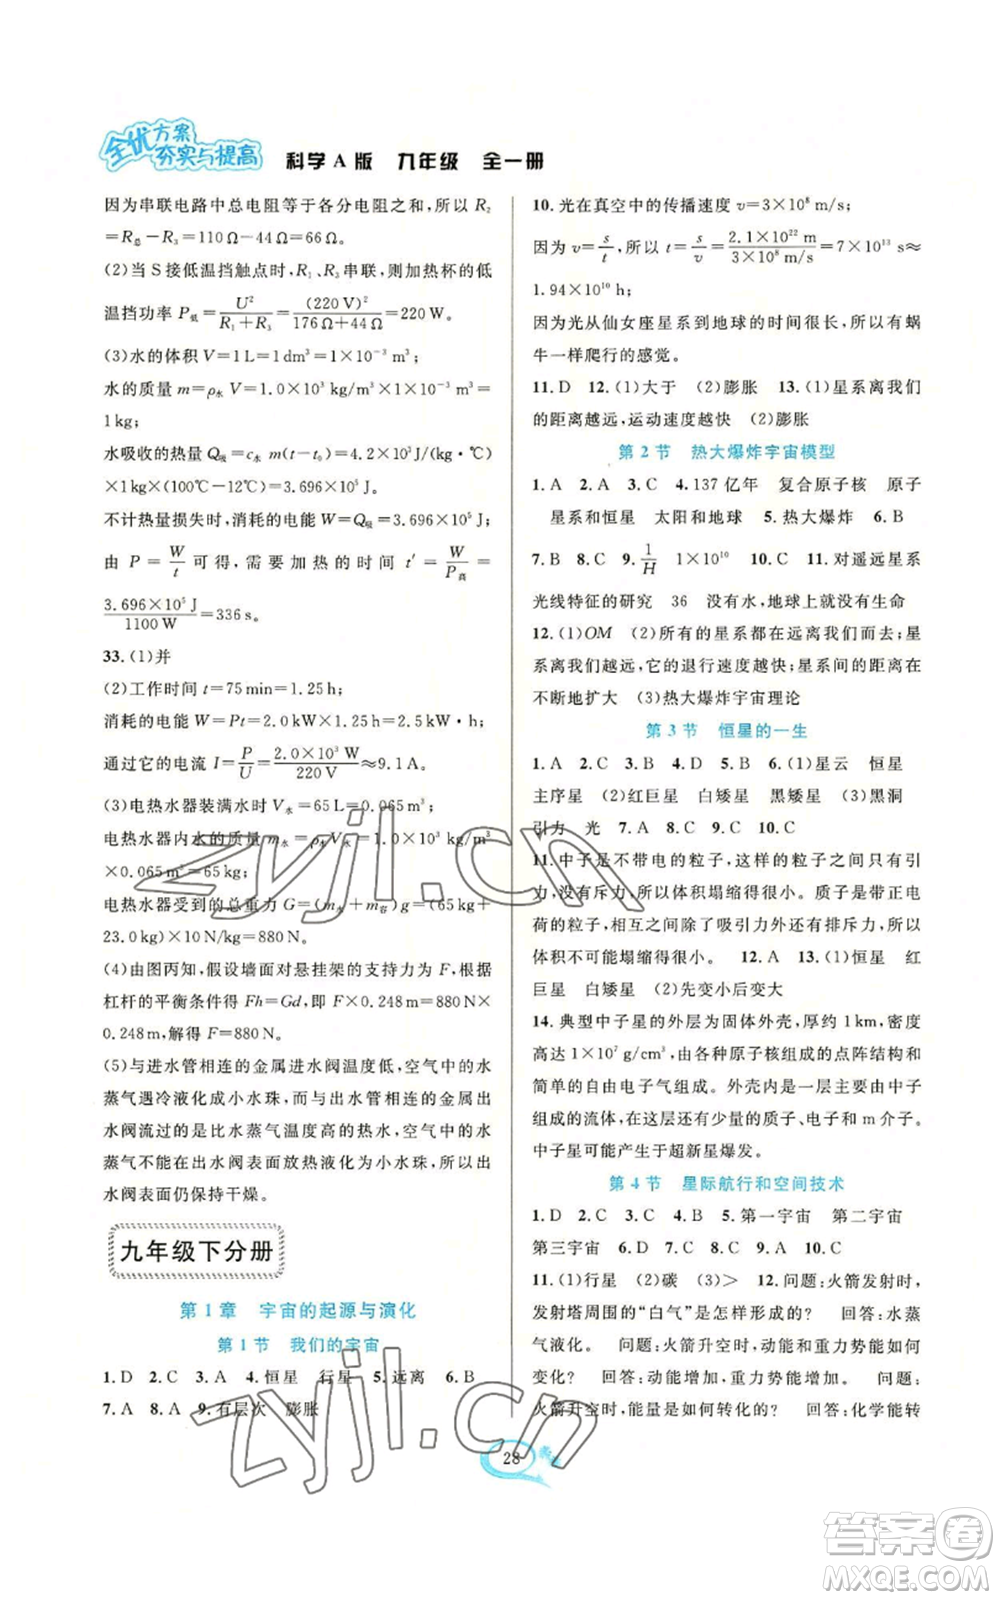 全优方案
夯实与提高 科学A版 九年级 全一册
因为串联电路中总电阻等于各分电阻之和,所以 R₂
=R总-R₃=110 Ω-44 Ω=66 Ω。
(2)当 S 接低温挡触点时,R₁、R₃ 串联,则加热杯的低
温挡功率 P低=U²/(R₁+R₃)=(220 V)²/(176 Ω+44 Ω)=220 W。
(3)水的体积 V=1 L=1 dm³=1×10⁻³ m³;
水的质量 m=ρ水 V=1.0×10³ kg/m³×1×10⁻³ m³=
1 kg;
水吸收的热量 Q吸=c水 m(t-t₀)=4.2×10³ J/(kg·℃)
×1 kg×(100℃-12℃)=3.696×10⁵ J;
不计热量损失时,消耗的电能 W=Q吸=3.696×10⁵ J,
由 P=W/t 可得,需要加热的时间 t′=W/P高=
3.696×10⁵ J/1100 W=336 s。
33.(1)并
(2)工作时间 t=75 min=1.25 h;
消耗的电能 W=Pt=2.0 kW×1.25 h=2.5 kW·h;
通过它的电流 I=P/U=2.0×10³ W/220 V≈9.1 A。
(3)电热水器装满水时 V水=65 L=0.065 m³;
电热水器内水的质量 m水=ρ水V水=1.0×10³ kg/m³
×0.065 m³=65 kg;
电热水器受到的总重力 G=(m水+m容)g=(65 kg+
23.0 kg)×10 N/kg=880 N。
(4)由图丙知,假设墙面对悬挂架的支持力为 F,根据
杠杆的平衡条件得 Fh=Gd,即 F×0.248 m=880 N×
0.248 m,解得 F=880 N。
(5)与进水管相连的金属进水阀温度低,空气中的水
蒸气遇冷液化成小水珠,而与出水管相连的金属出
水阀流过的是比水蒸气温度高的热水,空气中的水
蒸气不能在出水阀表面放热液化为小水珠,所以出
水阀表面仍保持干燥。
九年级下分册
第 1 章 宇宙的起源与演化
第 1 节 我们的宇宙
1. D 2. C 3. A 4. 恒星 行星 5. 远离 6. B
7. A 8. A 9. 有层次 膨胀
10. 光在真空中的传播速度 v=3×10⁸ m/s;
因为 v=s/t,所以 t=s/v=2.1×10²² m/3×10⁸ m/s=7×10¹³ s≈
1.94×10¹⁰ h;
因为光从仙女座星系到地球的时间很长,所以有蜗
牛一样爬行的感觉。
11. D 12.(1)大于 (2)膨胀 13.(1)星系离我们
的距离越远,运动速度越快 (2)膨胀
第 2 节 热大爆炸宇宙模型
1. A 2. A 3. C 4. 137 亿年 复合原子核 原子
星系和恒星 太阳和地球 5. 热大爆炸 6. B
7. B 8. C 9. 1/H 1×10¹⁰ 10. C 11. 对遥远星系
光线特征的研究 36 没有水,地球上就没有生命
12.(1)OM (2)所有的星系都在远离我们而去;星
系离我们越远,它的退行速度越快;星系间的距离在
不断地扩大 (3)热大爆炸宇宙理论
第 3 节 恒星的一生
1. A 2. C 3. B 4. D 5. B 6.(1)星云 恒星
主序星 (2)红巨星 白矮星 黑矮星 (3)黑洞
引力 光 7. A 8. C 9. C 10. C
11. 中子是不带电的粒子,这样的粒子之间只有引
力,没有斥力,所以体积塌缩得很小。质子是带正电
荷的粒子,它们之间除了吸引力外还有排斥力,所以
体积不可能塌缩得很小。 12. A 13.(1)恒星 红
巨星 白矮星 (2)先变小后变大
14. 典型中子星的外层为固体外壳,厚约 1 km,密度
高达 1×10⁷ g/cm³,由各种原子核组成的点阵结构和
简单的自由电子气组成。外壳内是一层主要由中子
组成的流体,在这层还有少量的质子、电子和 m 介子。
中子星可能产生于超新星爆发。
第 4 节 星际航行和空间技术
1. D 2. C 3. C 4. B 5. 第一宇宙 第二宇宙
第三宇宙 6. D 7. D 8. B 9. D 10. A
11.(1)行星 (2)碳 (3)> 12. 问题:火箭发射时,
发射塔周围的“白气”是怎样形成的? 回答:水蒸
气液化。 问题:火箭升空时,动能和重力势能如何
变化? 回答:动能增加,重力势能增加。 问题:
火箭升空时,能量是如何转化的? 回答:化学能转
28
zyjl.cn
zyjl.cn
答案卷
MXQE.COM